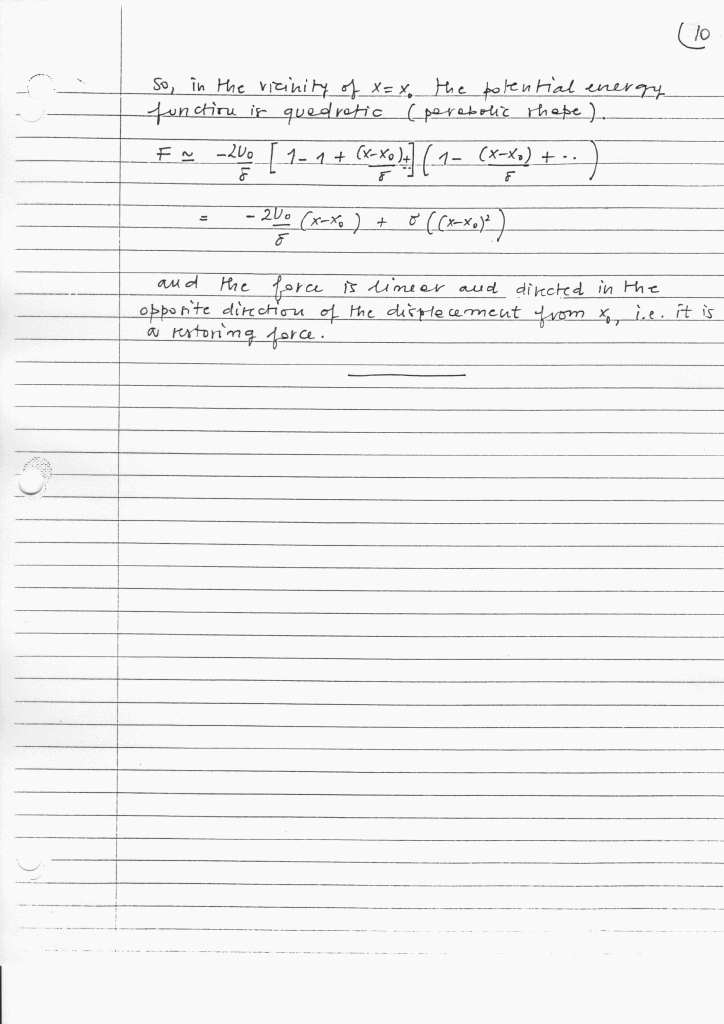 10
So, in the vicinity of x = x₀ the potential energy
function is quadratic (parabolic shape).
F ≃ -2U₀/δ [ 1 - 1 + (x-x₀)/δ + .. ] ( 1 - (x-x₀)/δ + .. )
= - 2U₀/δ (x-x₀) + σ((x-x₀)²)
and the force is linear and directed in the
opposite direction of the displacement from x₀, i.e. it is
a restoring force.